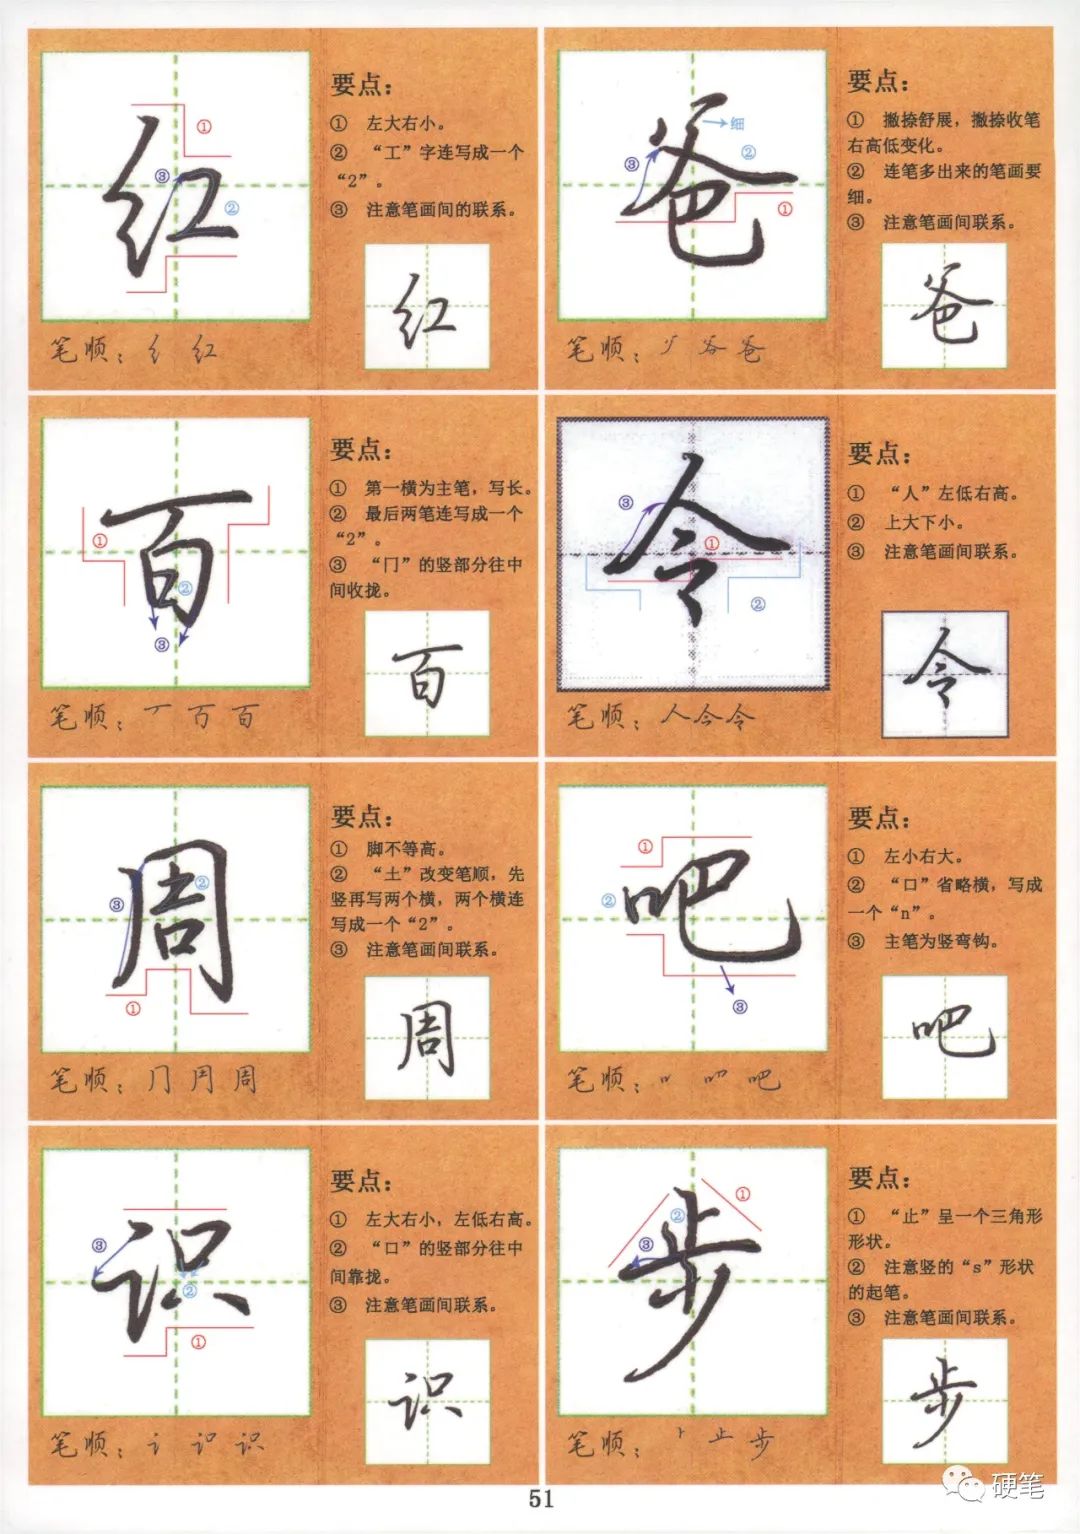 红
①
③
②
要点：
① 左大右小。
② “工”字连写成一个
“2”。
③ 注意笔画间的联系。
红
笔顺：纟 红
爸
细
②
③
①
要点：
① 撇捺舒展，撇捺收笔
右高低变化。
② 连笔多出来的笔画要
细。
③ 注意笔画间联系。
爸
笔顺：爷 爸
百
①
②
③
要点：
① 第一横为主笔，写长。
② 最后两笔连写成一个
“2”。
③ “冂”的竖部分往中
间收拢。
百
笔顺：丆 百
令
③
①
②
要点：
① “人”左低右高。
② 上大下小。
③ 注意笔画间联系。
令
笔顺：人 令
周
②
③
①
要点：
① 脚不等高。
② “土”改变笔顺，先
竖再写两个横，两个横连
写成一个“2”。
③ 注意笔画间联系。
周
笔顺：冂 周
吧
①
②
③
要点：
① 左小右大。
② “口”省略横，写成
一个“n”。
③ 主笔为竖弯钩。
吧
笔顺：吧
识
③
②
①
要点：
① 左大右小，左低右高。
② “口”的竖部分往中
间靠拢。
③ 注意笔画间联系。
识
笔顺：讠 识 识
步
①
②
③
要点：
① “止”呈一个三角形
形状。
② 注意竖的“s”形状
的起笔。
③ 注意笔画间联系。
步
笔顺：⺊ 止 步
51
硬笔